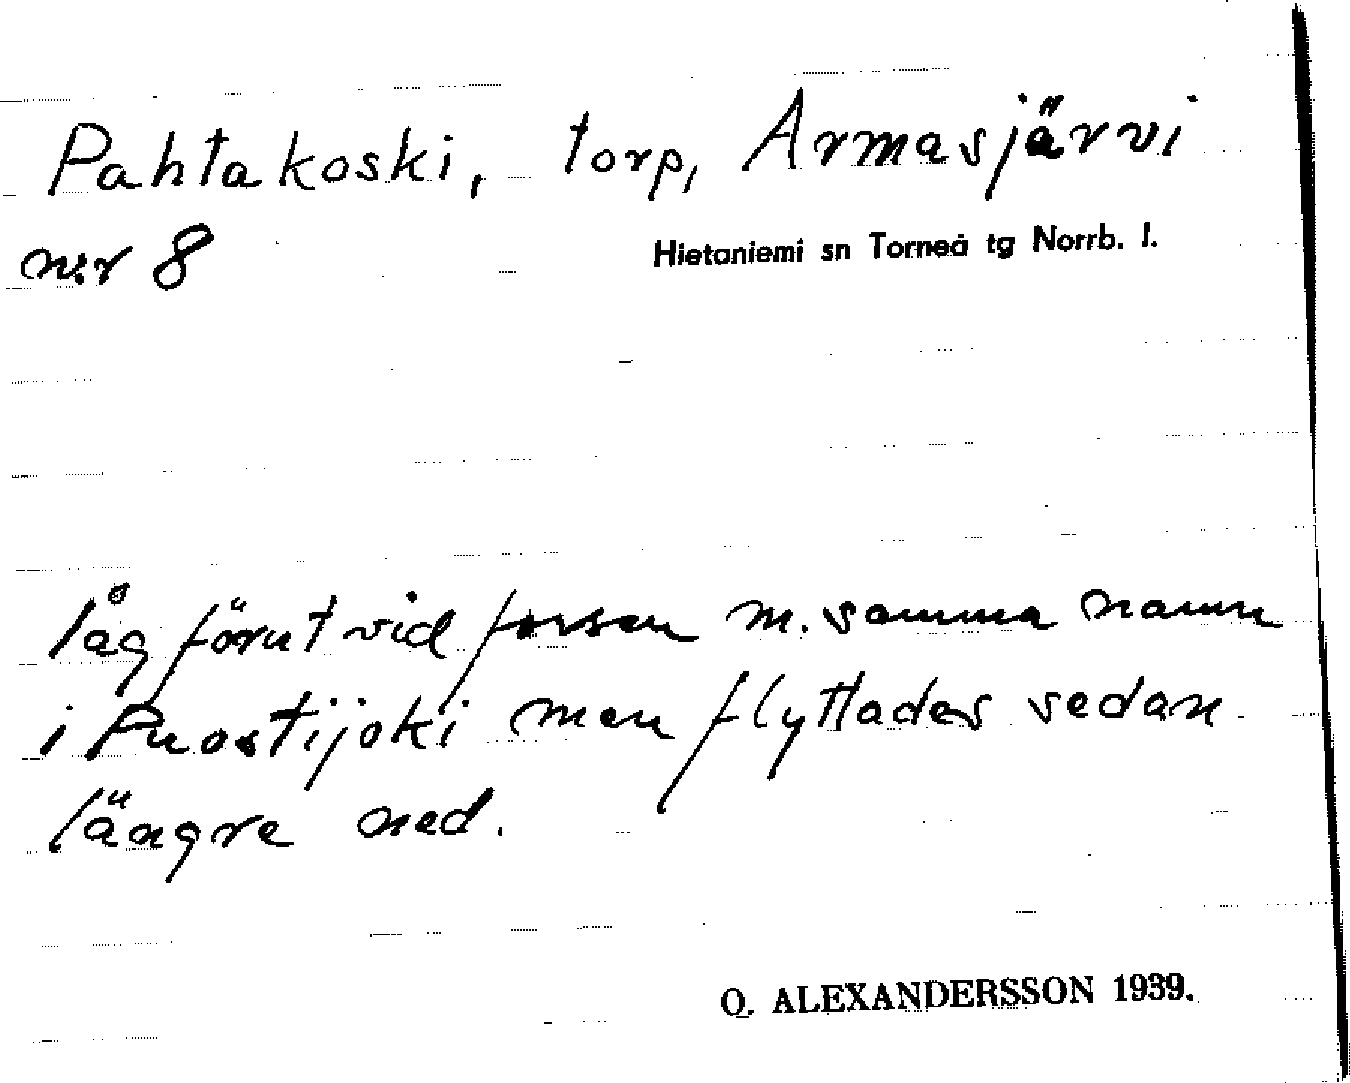 Pahtakoski, torp, Armasjärvi
n:r 8
Hietaniemi sn Torneå tg Norrb. l.
låg förut vid forsen m. samma namn
i Puostijoki men flyttades sedan
längre ned.
O. ALEXANDERSSON 1939.